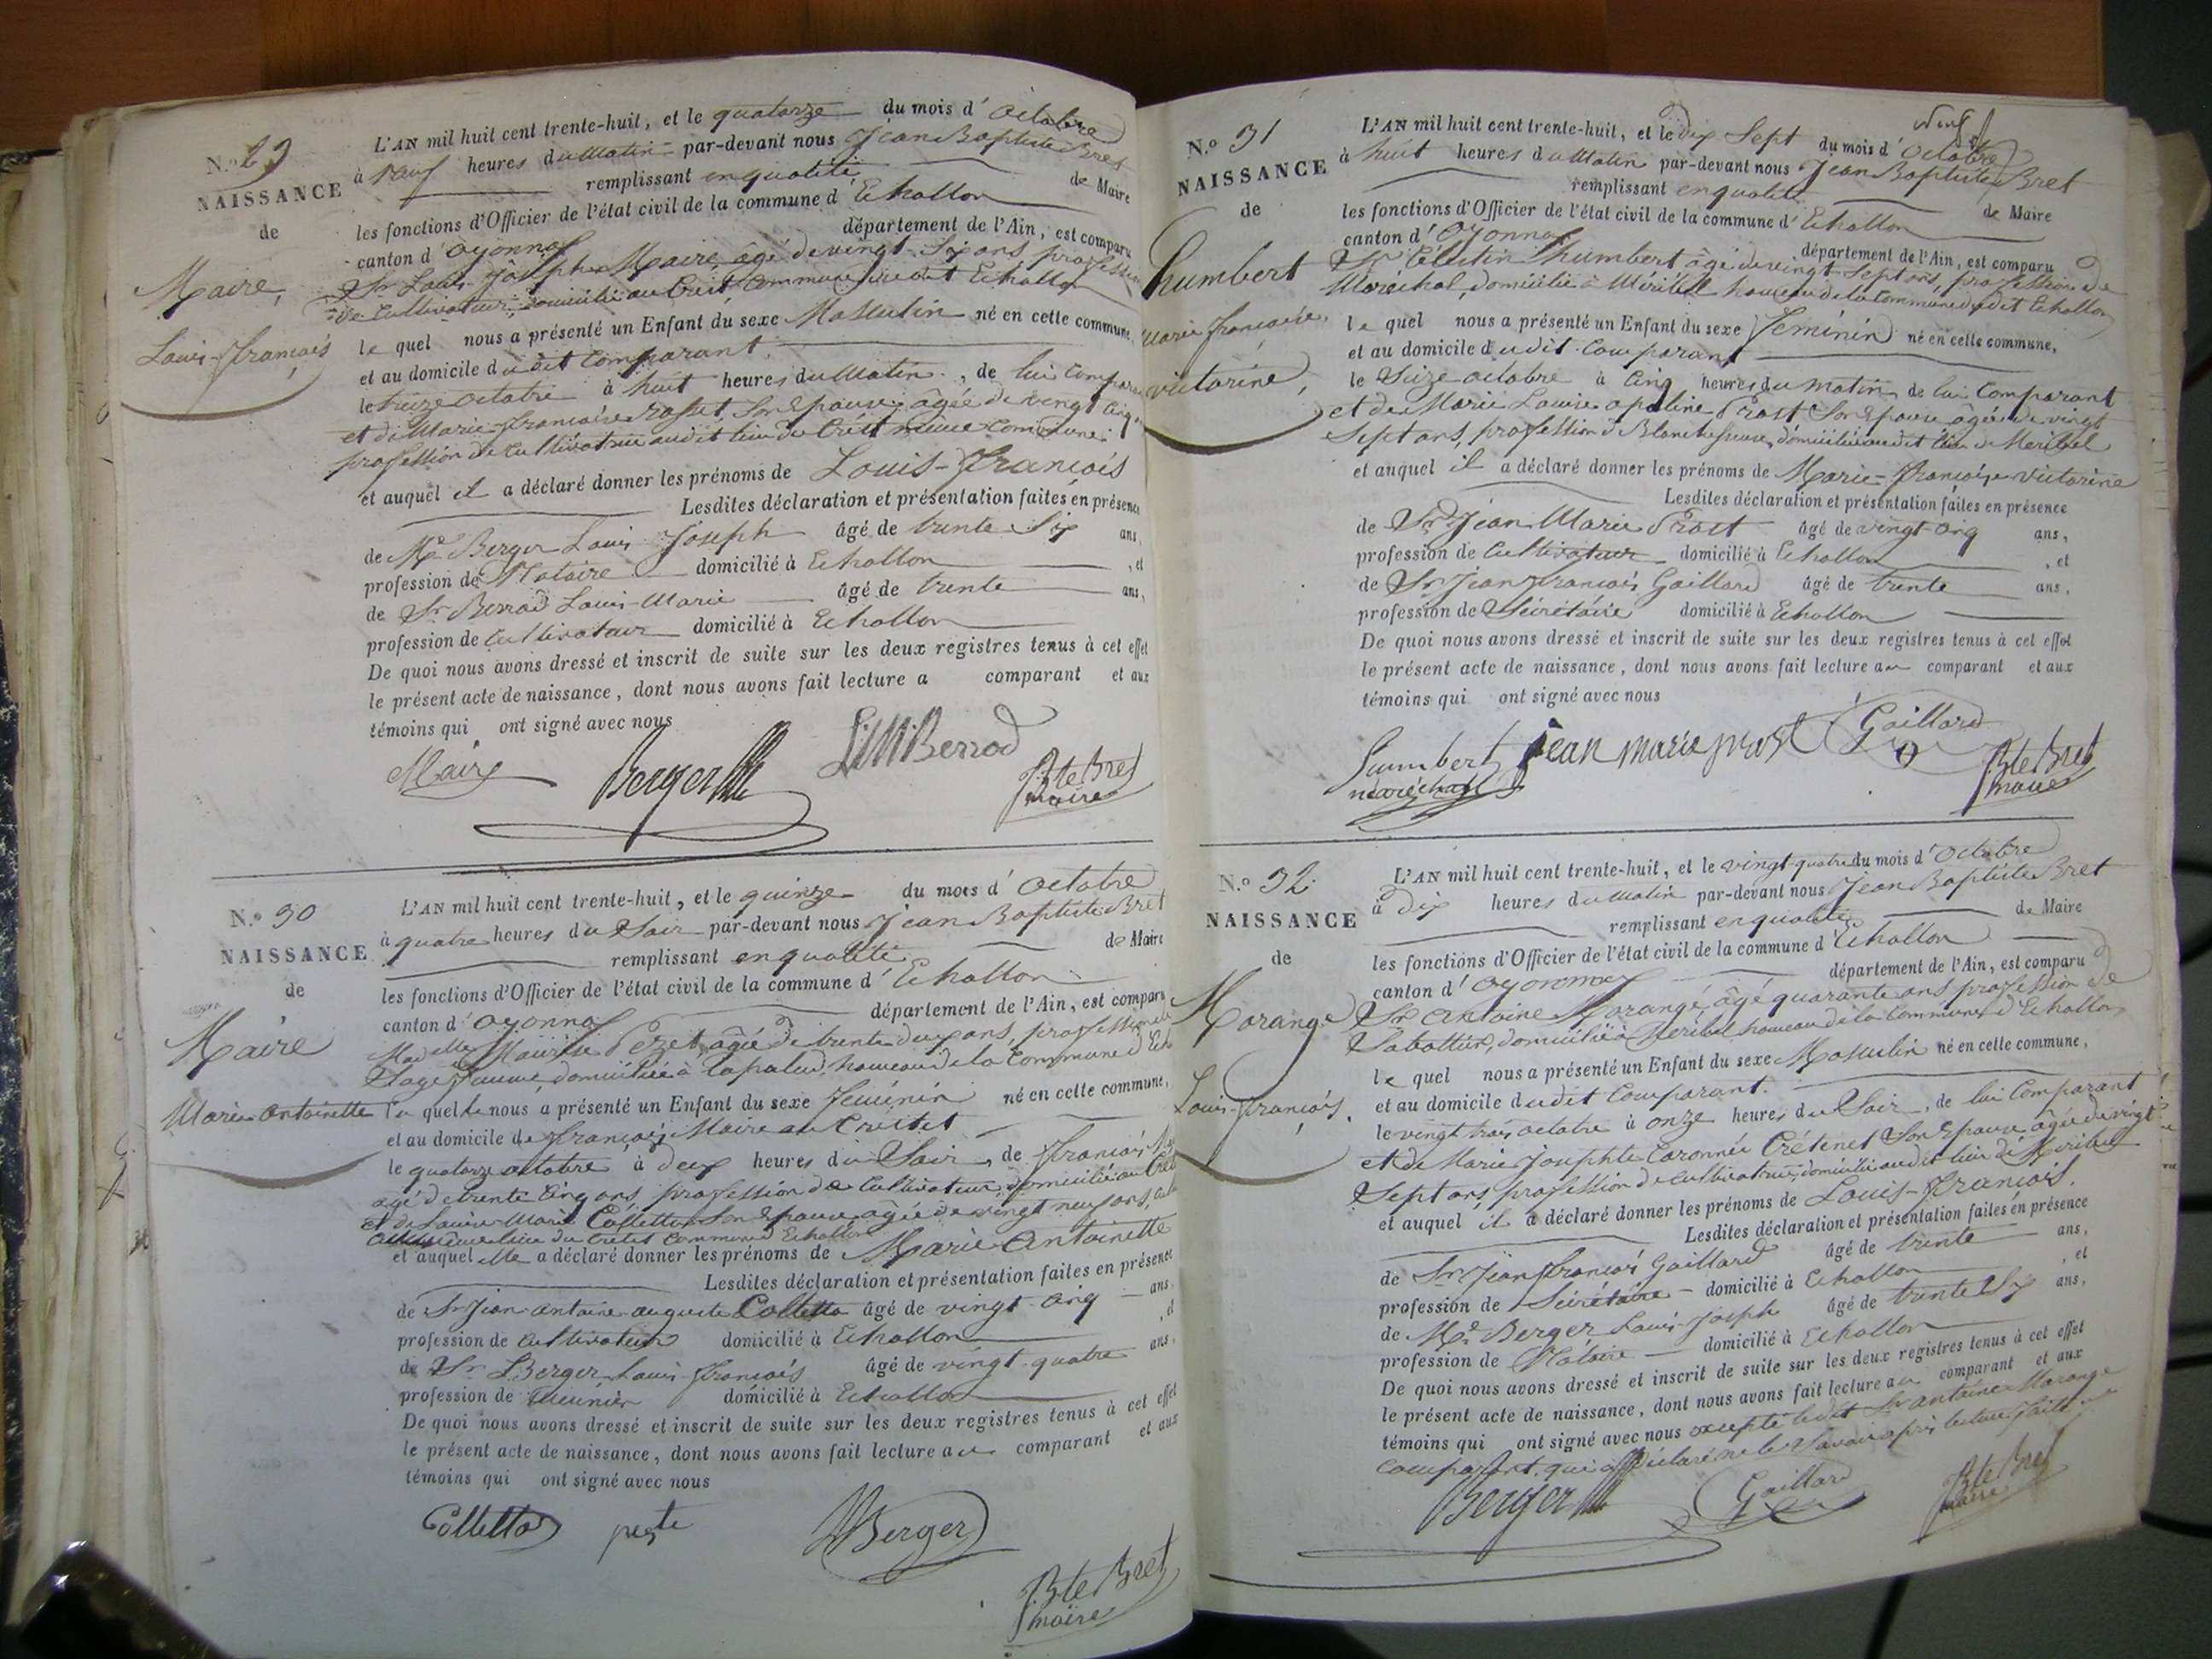 N.o 29
NAISSANCE
de
Maire,
Louis-françois
L'AN mil huit cent trente-huit, et le quatorze du mois d'octobre
à neuf heures du Matin par-devant nous Jean Baptiste Bret
remplissant en qualité de Maire
les fonctions d'Officier de l'état civil de la commune d'Echallon
canton d'oyonnax département de l'Ain, est comparu
Sr Louis Joseph Maire, âgé de vingt-six ans, profession
de cultivateur, domicilié au Crêt, Commune dudit Echallon
le quel nous a présenté un Enfant du sexe Masculin né en cette commune,
et au domicile dudit Comparant.
le treize octobre à huit heures du Matin, de lui Comparant
et de Marie françoise rosset, Son Epouse, âgée de vingt cinq
profession de cultivatrice audit lieu du Crêt même commune.
et auquel il a déclaré donner les prénoms de Louis-François
Lesdites déclaration et présentation faites en présence
de Me Berger Louis Joseph âgé de trente Six ans,
profession de Notaire domicilié à Echallon, et
de Sr Berrod Louis-Marie âgé de trente ans,
profession de cultivateur domicilié à Echallon
De quoi nous avons dressé et inscrit de suite sur les deux registres tenus à cet effet
le présent acte de naissance, dont nous avons fait lecture a comparant et aux
témoins qui ont signé avec nous
Maire Berger LMBerrod
Bte Bret
maire
N.o 30
NAISSANCE
de
Maire
Marie Antoinette
L'AN mil huit cent trente-huit, et le quinze du mois d'octobre
à quatre heures du Soir par-devant nous Jean Baptiste Bret
remplissant en qualité de Maire
les fonctions d'Officier de l'état civil de la commune d'Echallon
canton d'oyonnax département de l'Ain, est comparu
Perret, âgée de trente deux ans, profession de
Sage femme, domiciliée à Lapalud, hameau de la Commune d'Ech
la quelle nous a présenté un Enfant du sexe féminin né en cette commune,
et au domicile de françois Maire au Crêtet
le quatorze octobre à deux heures du Soir, de françois
âgé de trente cinq ans, profession de Cultivateur, domicilié au
et de Louise-Marie Colletta Son Epouse, âgée de vingt neuf ans,
lieu du Crêtet commune d'Echallon
et auquel elle a déclaré donner les prénoms de Marie Antoinette
Lesdites déclaration et présentation faites en présence
de Sr Jean antoine auguste Colletta âgé de vingt-cinq ans,
profession de cultivateur domicilié à Echallon, et
de Sr Berger Louis françois âgé de vingt-quatre ans,
profession de Meunier domicilié à Echallon
De quoi nous avons dressé et inscrit de suite sur les deux registres tenus à cet effet
le présent acte de naissance, dont nous avons fait lecture au comparant et aux
témoins qui ont signé avec nous
Colletta Berger
Bte Bret
maire
N.o 31
NAISSANCE
de
humbert
Marie françoise
victorine,
L'AN mil huit cent trente-huit, et le dix Sept du mois d'octobre
à huit heures du Matin par-devant nous Jean Baptiste Bret
remplissant en qualité de Maire
les fonctions d'Officier de l'état civil de la commune d'Echallon
canton d'Oyonnax département de l'Ain, est comparu
Sr Célestin humbert âgé de vingt-Sept ans, profession de
Maréchal, domicilié à Méribel hameau de la Commune dudit Echallon
le quel nous a présenté un Enfant du sexe féminin né en cette commune,
et au domicile dudit Comparant
le Seize octobre à Cinq heures du matin, de lui Comparant
et de Marie Louise apoline Prost Son Epouse, âgée de vingt
Sept ans, profession de Blanchisseuse, domiciliée audit lieu de Meribel
et auquel il a déclaré donner les prénoms de Marie-françoise victorine
Lesdites déclaration et présentation faites en présence
de Sr Jean Marie Prost âgé de vingt-cinq ans,
profession de Cultivateur domicilié à Echallon, et
de Sr Jean François Gaillard âgé de trente ans,
profession de Sécrétaire domicilié à Echallon
De quoi nous avons dressé et inscrit de suite sur les deux registres tenus à cet effet
le présent acte de naissance, dont nous avons fait lecture au comparant et aux
témoins qui ont signé avec nous
humbert jean marie prost Gaillard
maréchal Bte Bret
maire
N.o 32
NAISSANCE
de
Morange
Louis-françois.
L'AN mil huit cent trente-huit, et le vingt-quatre du mois d'Octobre
à Dix heures du Matin par-devant nous Jean Baptiste Bret
remplissant en qualité de Maire
les fonctions d'Officier de l'état civil de la commune d'Echallon
canton d'oyonnax département de l'Ain, est comparu
Sr Antoine Morange, âgé quarante ans, profession de
Sabottier, domicilié à Meribel, hameau de la Commune d'Echallon
le quel nous a présenté un Enfant du sexe Masculin né en cette commune,
et au domicile dudit Comparant.
le vingt trois octobre à onze heures du Soir, de lui Comparant
et de Marie Josephte Caronnée Crétenet Son Epouse, âgée de vingt
Sept ans, profession de cultivatrice, domiciliée audit lieu de Méribel
et auquel il a déclaré donner les prénoms de Louis-François.
Lesdites déclaration et présentation faites en présence
de Sr Jean François Gaillard âgé de trente ans,
profession de Sécrétaire domicilié à Echallon, et
de Me Berger Louis-Joseph âgé de trente Six ans,
profession de Notaire domicilié à Echallon
De quoi nous avons dressé et inscrit de suite sur les deux registres tenus à cet effet
le présent acte de naissance, dont nous avons fait lecture au comparant et aux
témoins qui ont signé avec nous excepté ledit Sr antoine Morange
comparant qui a Déclaré ne le Savoir après lecture faite
Berger Gaillard Bte Bret
maire